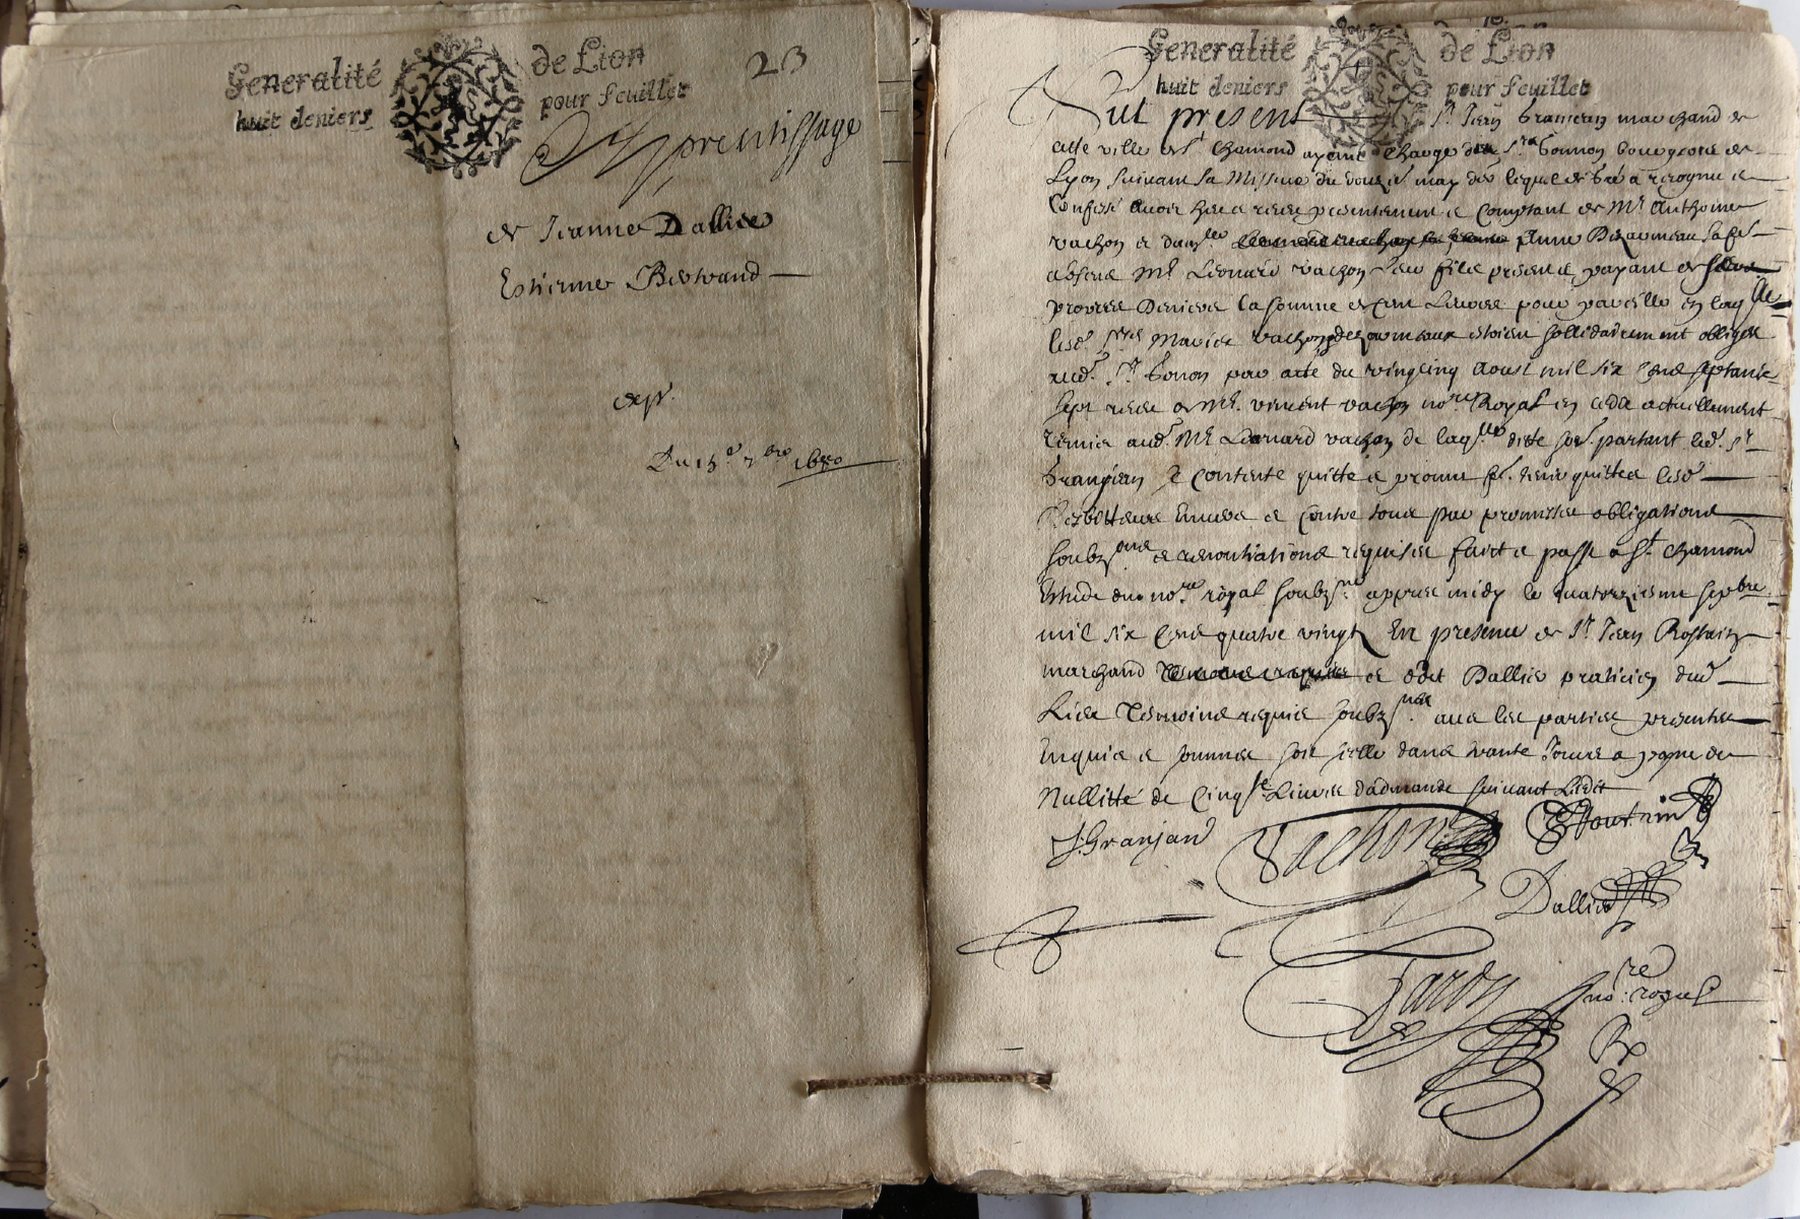 Generalité de Lion 23
huit deniers pour feuillet
Apprentissage
de Jeanne Dallier
Estienne Bertrand
exp.
Du 15e 7bre 1680
Generalité de Lion
huit deniers pour feuillet
Fut present Sr Jean Granjean marchand de
cette ville de St Chamond ayant charge du Sr bourgeois de
Lyon suivant sa missive du may der lequel de gré a recognu et
confessé avoir heu et receu presentement et comptant de Me Anthoine
vachon et damlle Anne sa fe
absens Me Léonard vachon leur filz present et payant de
propres deniers la somme de cent livres pour pareille en laqlle
lesd. mariés vachon et estoient sollidairement obligés
aud. Sr par acte du vingcinq aoust mil six cens septante
sept receu de Me. vincent vachon nore Royal en cede actuellement
remise aud. Me Léonard vachon de laqlle ditte some. partant led. Sr
Granjean se contente quitte et promet fe. tenir quittes lesd
debitteurs envers et contre tous par promesses obligations
soubzons et renontiations requises faict et passé a St. chamond
Estude du nore royal soubzne appres midy le quatorziesme sepbre
mil six cens quatre vingtz En presence de Sr Jean
marchand et odet Dallier praticien dud
Lieu tesmoins requis soubznés avec les parties presentes
enquis et sommés soit scellé dans trante jours a payne de
Nullitté de cinqte Livres dadmande suivant Ledit
J. Granjean Vachon
Dallier
Jardn nore royal